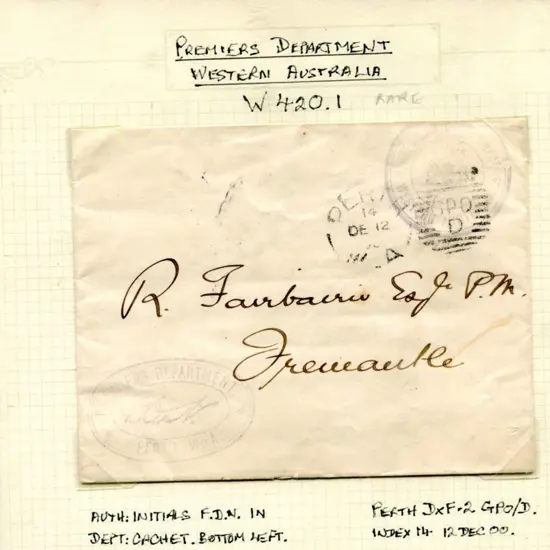 PREMIERS DEPARTMENT
WESTERN AUSTRALIA
W420.1 RARE
PERTH
14
DE 12
GPO
D
R. Fairbairn Esqr P.M.
Fremantle
DEPARTMENT
AUTH: INITIALS F.D.N. IN
DEPT: CACHET. BOTTOM LEFT.
PERTH DXF-2 GPO/D.
INDEX 14 12 DEC 00.